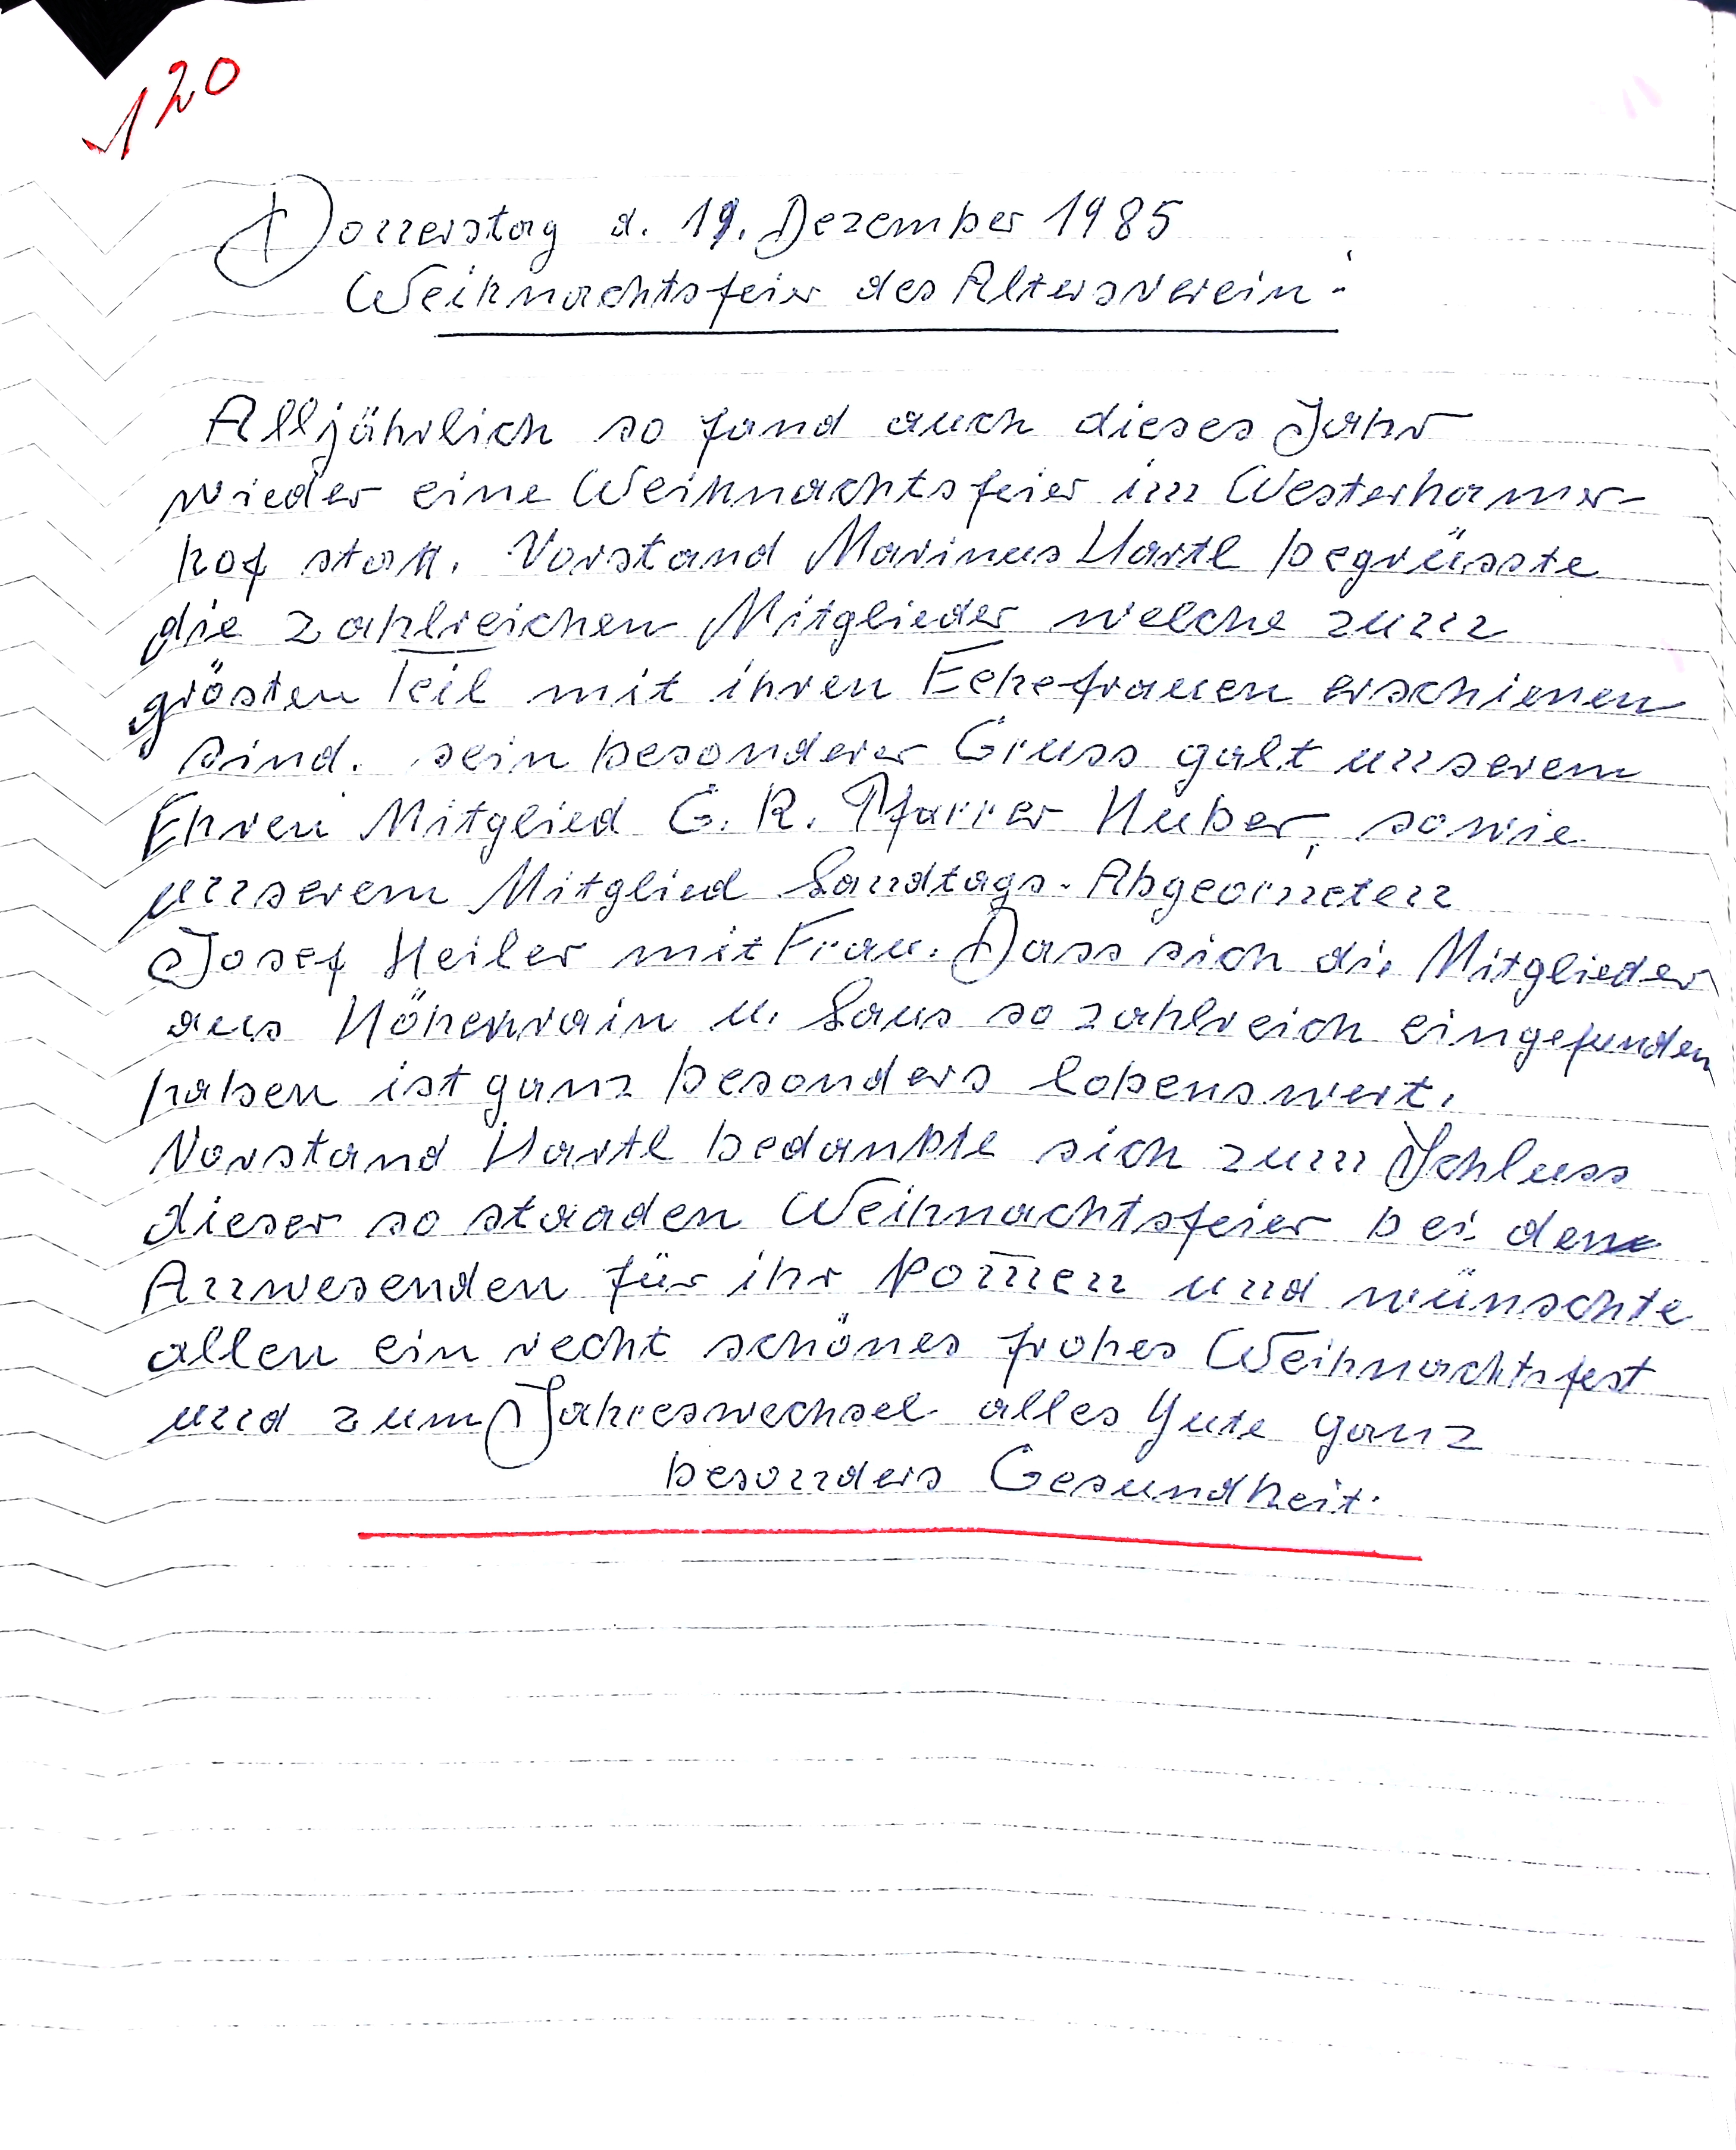 120
Donnerstag d. 19. Dezember 1985
Weihnachtsfeier des Altersverein:
Alljährlich so fand auch dieses Jahr
wieder eine Weihnachtsfeier im Westerhamer-
hof statt. Vorstand Marinus Hartl begrüsste
die zahlreichen Mitglieder welche zum
grösten Teil mit ihren Eehefrauen erschienen
sind. sein besonderer Gruss galt unserem
Ehren Mitglied G. R. Pfarrer Huber, sowie
unserem Mitglied Landtags-Abgeordneten
Josef Heiler mit Frau. Dass sich die Mitglieder
aus Höhenrain u. Laus so zahlreich eingefunden
haben ist ganz besonders lobenswert.
Vorstand Hartl bedankte sich zum Schluss
dieser so staaden Weihnachtsfeier bei den
Anwesenden für ihr kom̅en und wünschte
allen ein recht schönes frohes Weihnachtsfest
und zum Jahreswechsel alles Gute ganz
besonders Gesundheit.